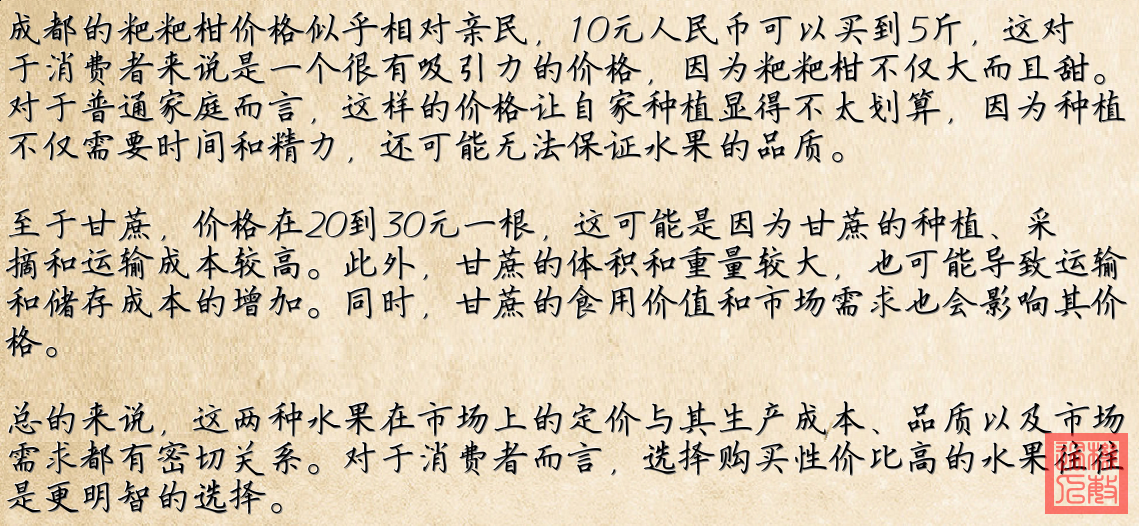 成都的粑粑柑价格似乎相对亲民，10元人民币可以买到5斤，这对
于消费者来说是一个很有吸引力的价格，因为粑粑柑不仅大而且甜。
对于普通家庭而言，这样的价格让自家种植显得不太划算，因为种植
不仅需要时间和精力，还可能无法保证水果的品质。
至于甘蔗，价格在20到30元一根，这可能是因为甘蔗的种植、采
摘和运输成本较高。此外，甘蔗的体积和重量较大，也可能导致运输
和储存成本的增加。同时，甘蔗的食用价值和市场需求也会影响其价
格。
总的来说，这两种水果在市场上的定价与其生产成本、品质以及市场
需求都有密切关系。对于消费者而言，选择购买性价比高的水果往往
是更明智的选择。